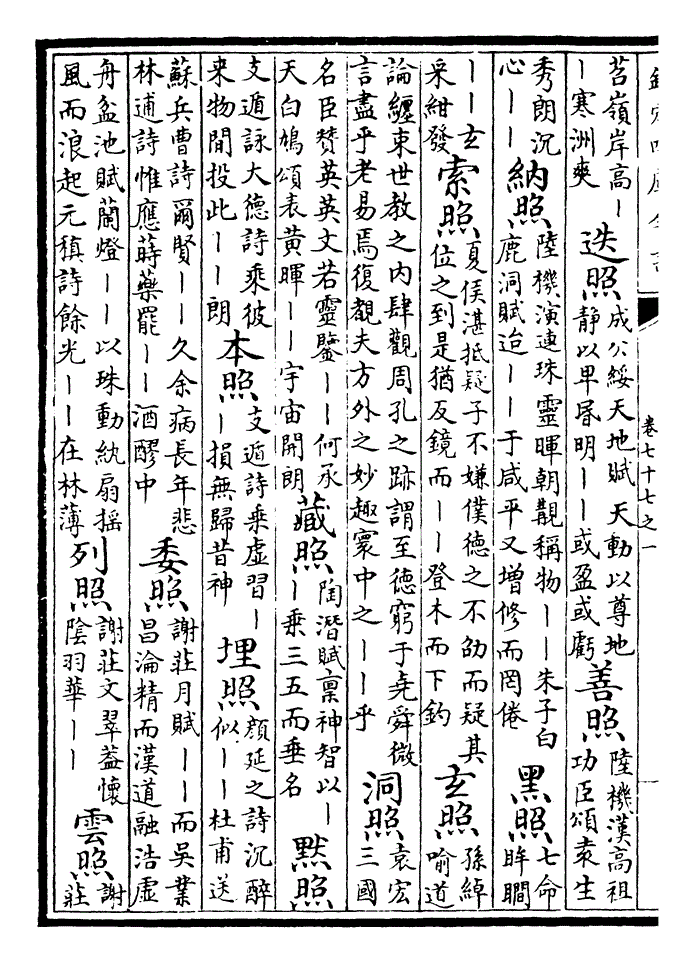 欽定四庫全書
卷七十七之一
苕嶺岸高丨
丨寒洲爽
迭照
成公綏天地賦 天動以尊地
靜以卑昬明丨丨或盈或虧
善照
陸機漢高祖
功臣頌袁生
秀朗沉
心丨丨
納照
陸機演連珠靈暉朝覯稱物丨丨朱子白
鹿洞賦迨丨丨于咸平又增修而罔倦
黑照
七命
眸瞷
丨丨玄
采紺發
索照
夏侯湛抵疑子不嫌僕德之不劭而疑其
位之到是猶反鏡而丨丨登木而下釣
玄照
孫綽
喻道
論纏束世教之内肆觀周孔之跡謂至德窮于堯舜微
言盡乎老易焉復覩夫方外之妙趣寰中之丨丨乎
洞照
袁宏
三國
名臣贊英英文若靈鑒丨丨何承
天白鳩頌表黃暉丨丨宇宙開朗
藏照
陶潛賦稟神智以丨
丨乘三五而垂名
黙照
支遁詠大德詩乘彼
来物間投此丨丨朗
本照
支遁詩乗虚習丨
丨損無歸昔神
埋照
顔延之詩沉醉
似丨丨杜甫送
蘇兵曹詩爾賢丨丨久余病長年悲
林逋詩惟應蒔藥罷丨丨酒醪中
委照
謝莊月賦丨丨而吳業
昌淪精而漢道融浩虚
舟盆池賦蘭燈丨丨以珠動紈扇摇
風而浪起元稹詩餘光丨丨在林薄
列照
謝莊文翠葢懷
陰羽華丨丨
雲照
謝
莊